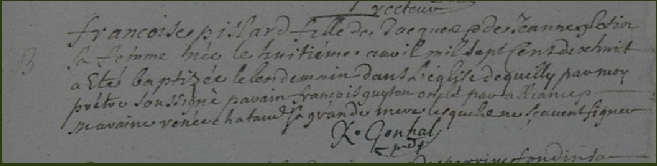 recteur
B
françoise pissard fille de Jacque & de Jeanne
sa femme née le huitième avvil mil sept sent dexhuit
a Eté baptizée le lendemain dans l'église de quilly par moy
prêtre soussigné parain françois guyton oncle par alliance
maraine renée chataud sa grande mere lesquels ne sçavent signer
R. Genhal